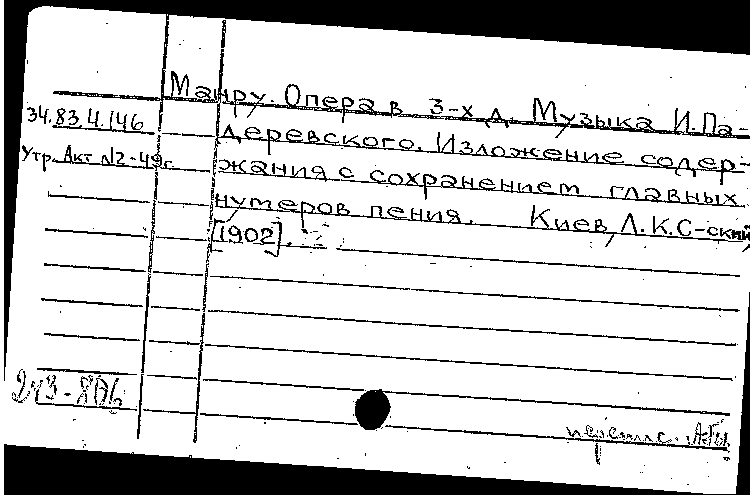 Манру. Опера в 3-х д. Музыка И. Па-
34.83.4.146
деревского. Изложение содер-
Утр. Акт №2-49г.
жания с сохранением главных
нумеров пения. Киев, Л.К.С-ский,
[1902].
перепис.